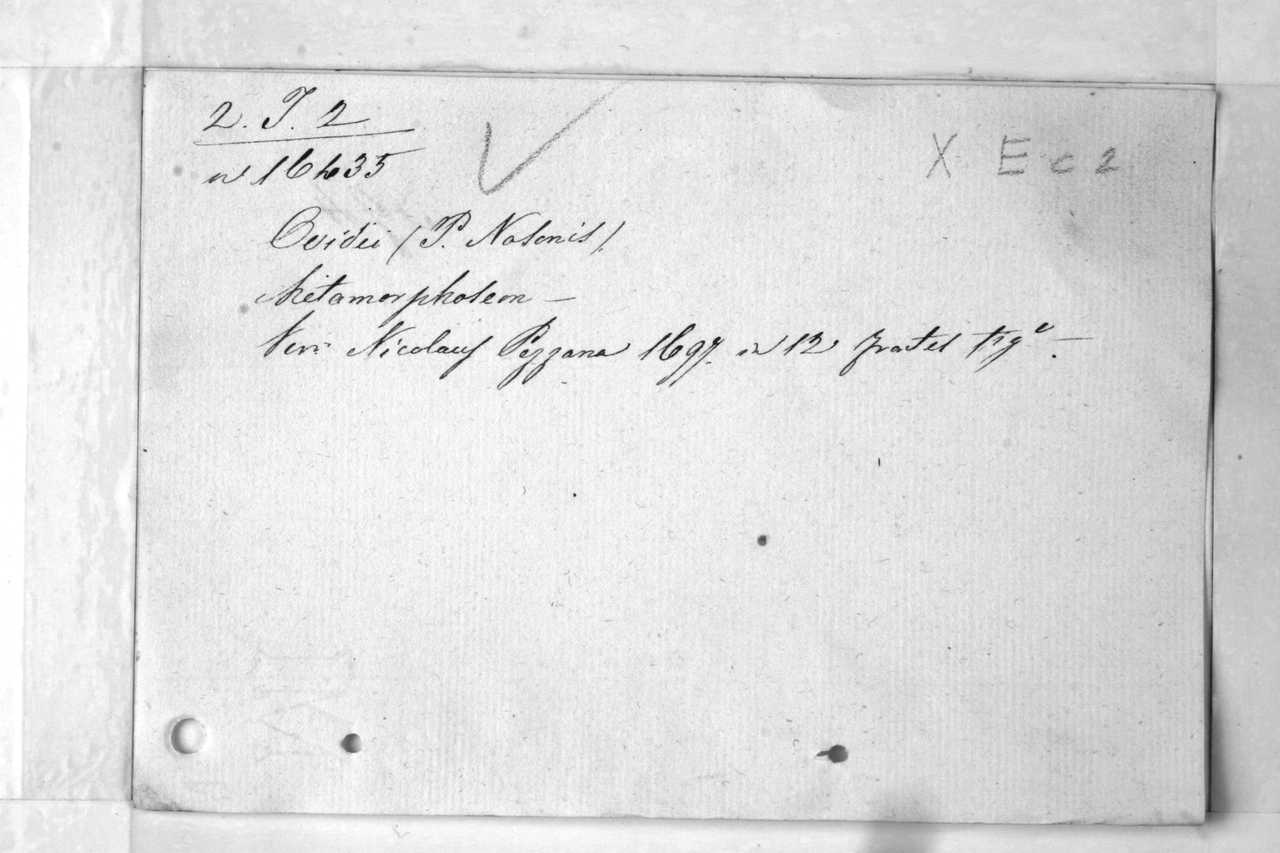 2. T. 2
X E c 2
Ovidii (P. Nasonis)
Metamorphoseon —
Ven: Nicolaus Pezzana 1697. in 12 fig.e —